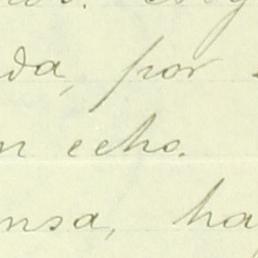 da, por
n echo.
nsa, ha